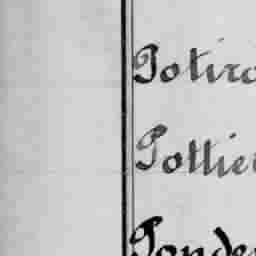 Potiro
Pottie
Ponde